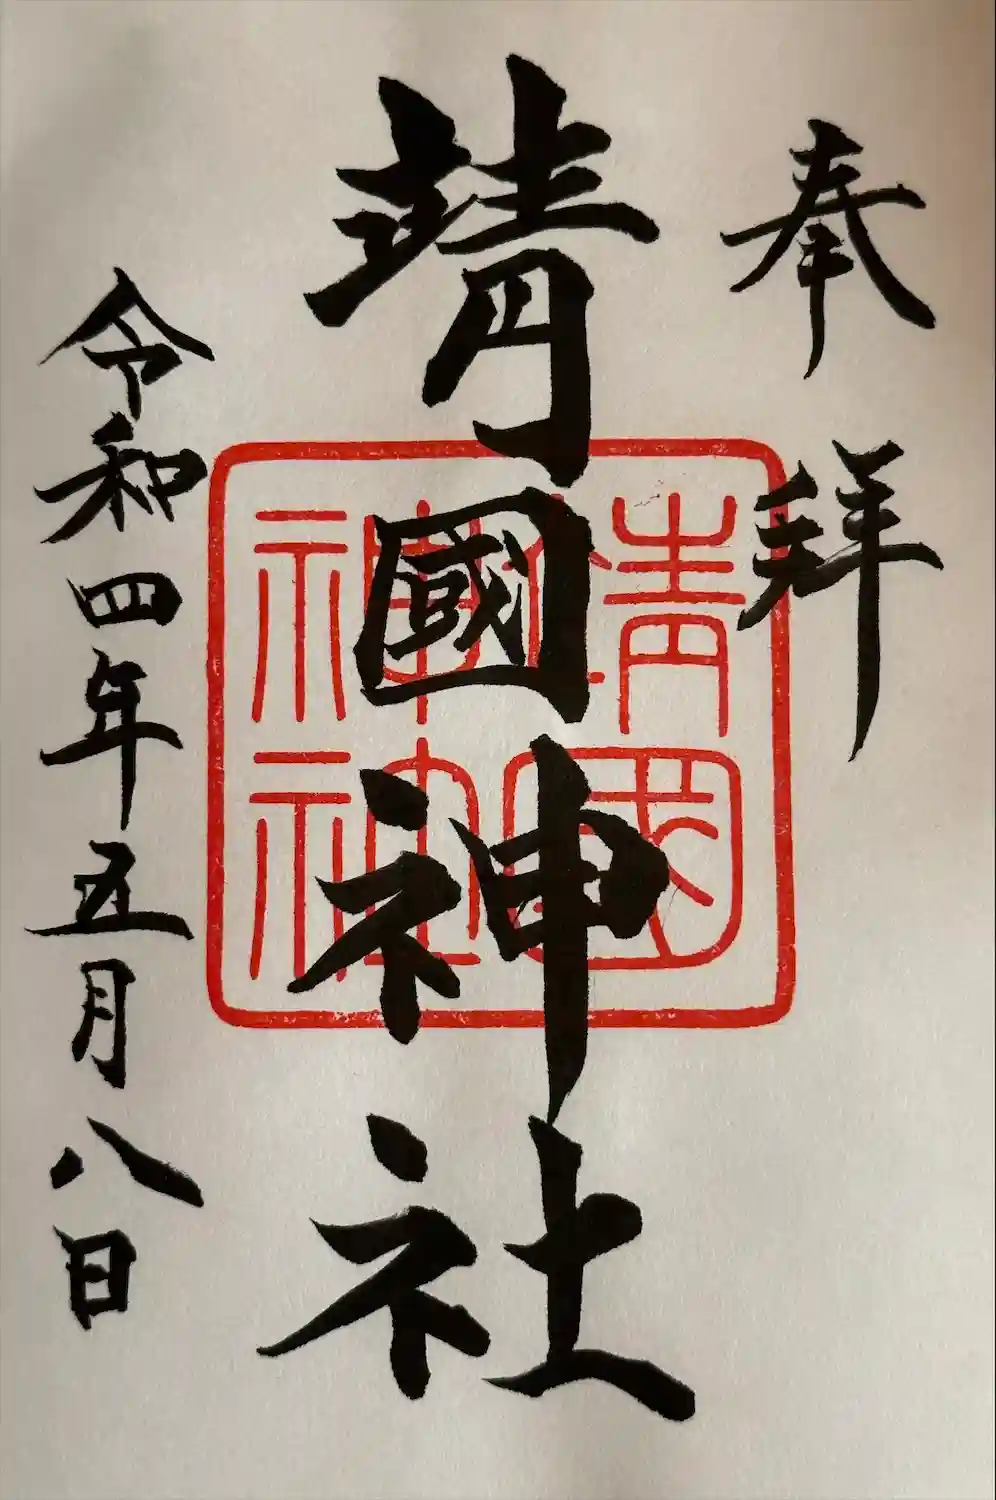 奉拝
靖國神社
靖國神社
令和四年五月八日